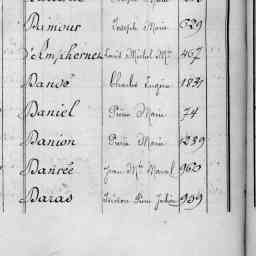 Damour Joseph Marie 629
d'Amphernet Louis Michel Mie 467
Dansé Charles Eugène 1831
Daniel Pierre Marie 74
Danion Pierre Marie 1239
Danrée Jean Mie Marcel 960
Daras Pierre Julien 909